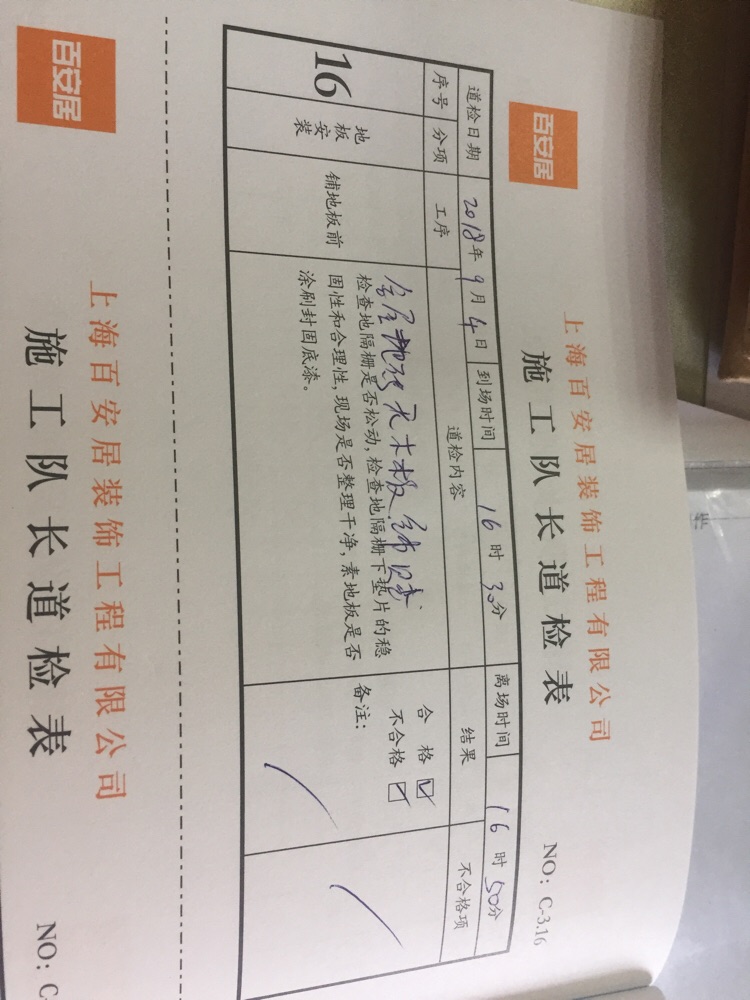 百安居
上海百安居装饰工程有限公司
施工队长道检表
NO：C-3.16
道检日期 2018年9月4日 到场时间 16时30分 离场时间 16时50分
序号 分项 工序 道检内容 结果 不合格项
16 地板安装 铺地板前
全屋地面无木板铺贴
检查地隔栅是否松动，检查地隔栅下垫片的稳
固性和合理性，现场是否整理干净，素地板是否
涂刷封固底漆。
合 格 ☑
不合格 ☑
备注：
百安居
上海百安居装饰工程有限公司
施工队长道检表
NO：C-